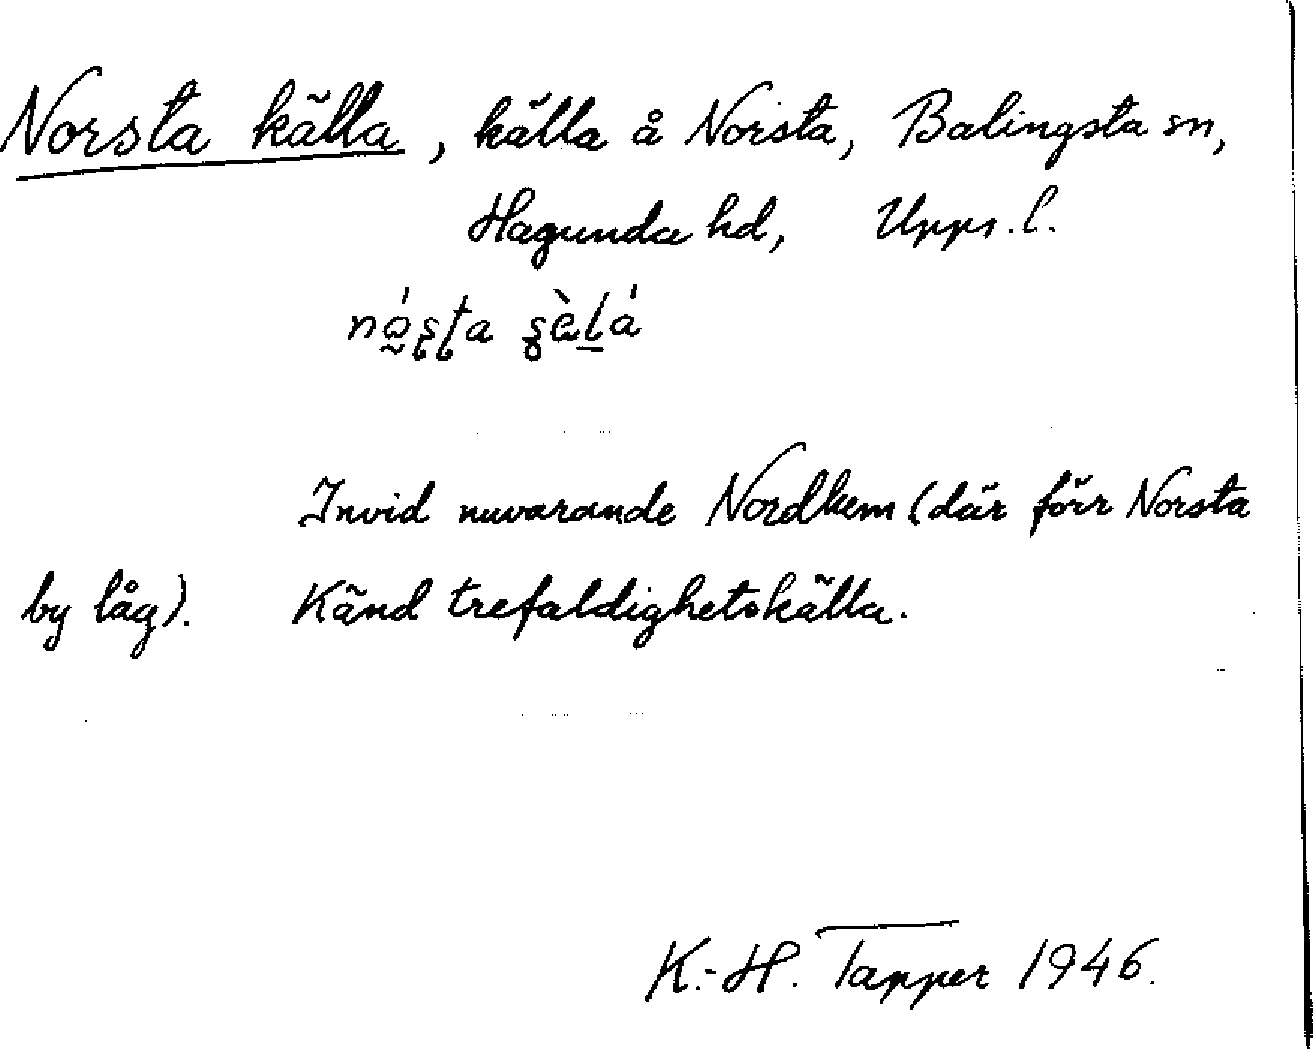 Norsta källa, källa å Norsta, Balingsta sn,
Hagunda hd, Upps. l.
Invid nuvarande Nordhem (där förr Norsta
by låg). Känd trefaldighetskälla.
K.-H. Tapper 1946.